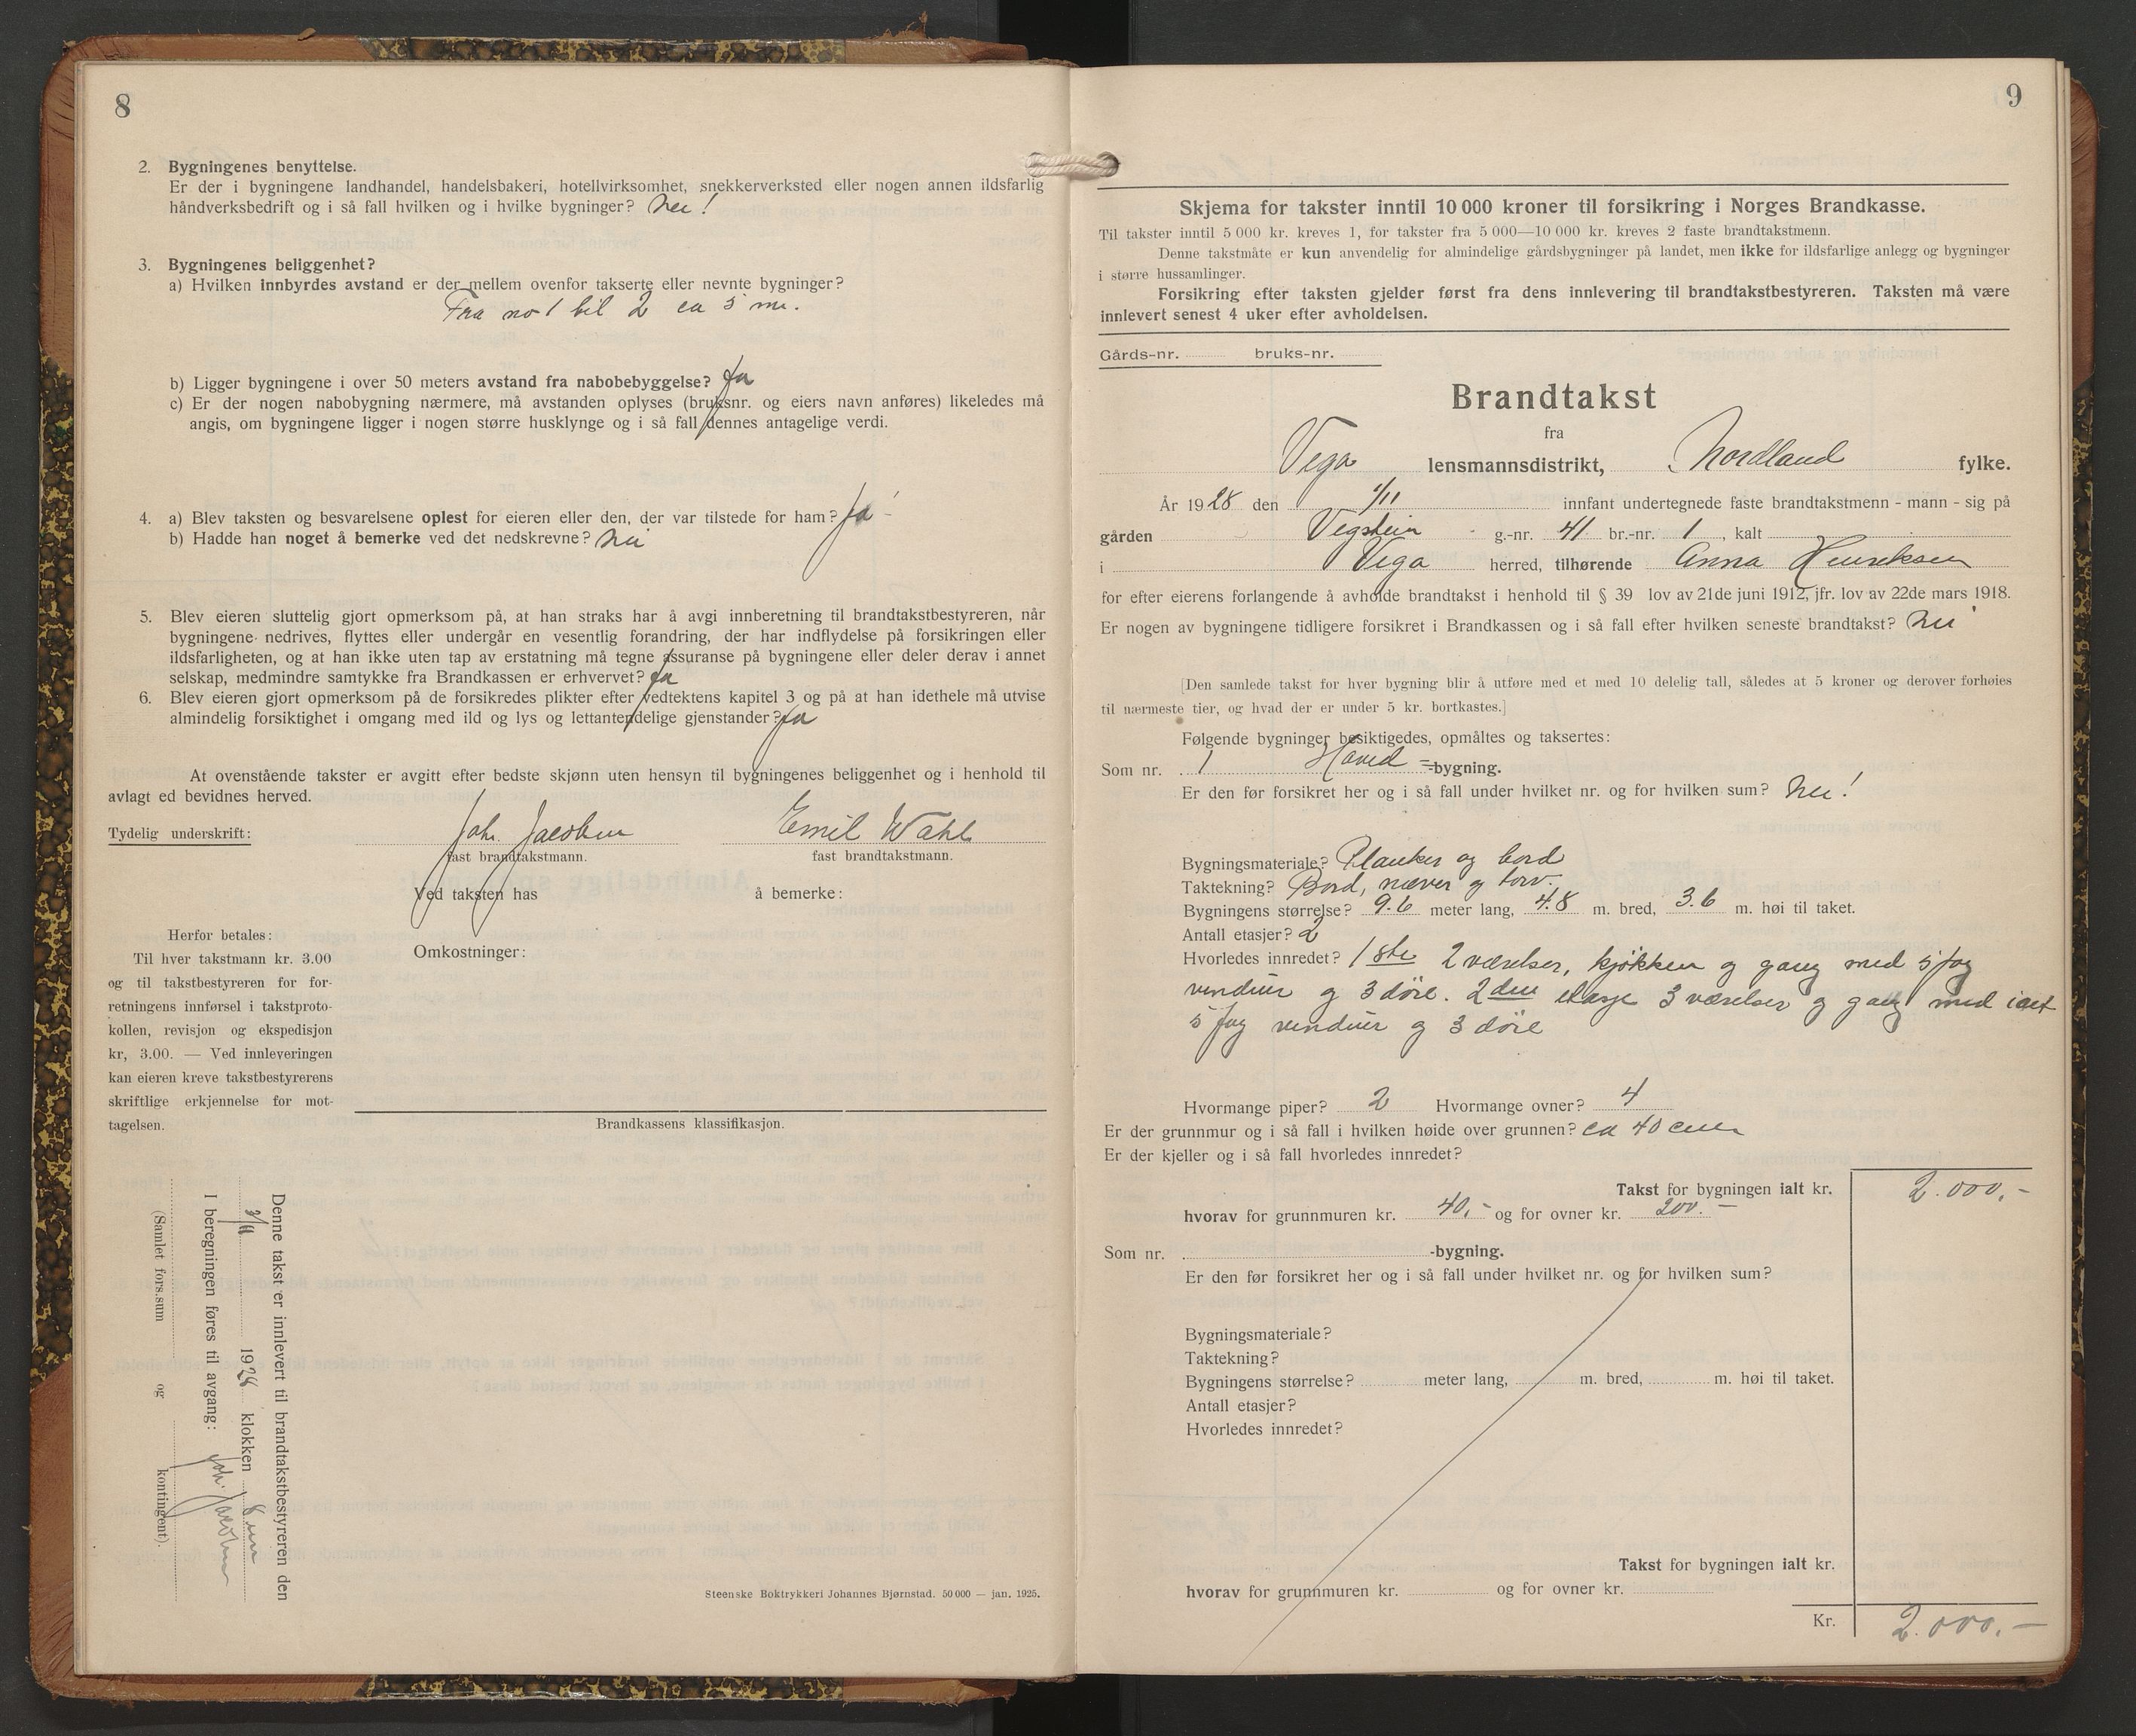 8
2. Bygningenes benyttelse.
Er der i bygningene landhandel, handelsbakeri, hotellvirksomhet, snekkerverksted eller nogen annen ildsfarlig
håndverksbedrift og i så fall hvilken og i hvilke bygninger? Nei!
3. Bygningenes beliggenhet?
a) Hvilken innbyrdes avstand er der mellem ovenfor takserte eller nevnte bygninger?
Fra no 1 til 2 ca 5 m.
b) Ligger bygningene i over 50 meters avstand fra nabobebyggelse? Ja
c) Er der nogen nabobygning nærmere, må avstanden oplyses (bruksnr. og eiers navn anføres) likeledes må
angis, om bygningene ligger i nogen større husklynge og i så fall dennes antagelige verdi.
4. a) Blev taksten og besvarelsene oplest for eieren eller den, der var tilstede for ham? Ja -
b) Hadde han noget å bemerke ved det nedskrevne? Nei
5. Blev eieren sluttelig gjort opmerksom på, at han straks har å avgi innberetning til brandtakstbestyreren, når
bygningene nedrives, flyttes eller undergår en vesentlig forandring, der har indflydelse på forsikringen eller
ildsfarligheten, og at han ikke uten tap av erstatning må tegne assuranse på bygningene eller deler derav i annet
selskap, medmindre samtykke fra Brandkassen er erhvervet? Ja
6. Blev eieren gjort opmerksom på de forsikredes plikter efter vedtektens kapitel 3 og på at han idethele må utvise
almindelig forsiktighet i omgang med ild og lys og lettantendelige gjenstander? Ja
At ovenstående takster er avgitt efter bedste skjønn uten hensyn til bygningenes beliggenhet og i henhold til
avlagt ed bevidnes herved.
Tydelig underskrift: Joh. Jacobsen Emil Wahl
fast brandtakstmann. fast brandtakstmann.
Ved taksten has å bemerke:
Herfor betales:
Omkostninger:
Til hver takstmann kr. 3.00
og til takstbestyreren for for-
retningens innførsel i takstproto-
kollen, revisjon og ekspedisjon
kr, 3.00. — Ved innleveringen
kan eieren kreve takstbestyrerens
skriftlige erkjennelse for mot-
tagelsen.
Brandkassens klassifikasjon.
Denne takst er innlevert til brandtakstbestyreren den
3/11 1928 klokken 8
I beregningen føres til avgang: Joh. Jacobsen
(Samlet fors.sum og kontingent).
Steenske Boktrykkeri Johannes Bjørnstad. 50 000 — jan. 1925.
9
Skjema for takster inntil 10 000 kroner til forsikring i Norges Brandkasse.
Til takster inntil 5 000 kr. kreves 1, for takster fra 5 000—10 000 kr. kreves 2 faste brandtakstmenn.
Denne takstmåte er kun anvendelig for almindelige gårdsbygninger på landet, men ikke for ildsfarlige anlegg og bygninger
i større hussamlinger.
Forsikring efter taksten gjelder først fra dens innlevering til brandtakstbestyreren. Taksten må være
innlevert senest 4 uker efter avholdelsen.
Gårds-nr. bruks-nr.
Brandtakst
fra
Vega lensmannsdistrikt, Nordland fylke.
År 1928 den 1/11 innfant undertegnede faste brandtakstmenn - mann - sig på
gården Vegstein g.-nr. 41 br.-nr. 1, kalt
i Vega herred, tilhørende Anna Henriksen
for efter eierens forlangende å avholde brandtakst i henhold til § 39 lov av 21de juni 1912, jfr. lov av 22de mars 1918.
Er nogen av bygningene tidligere forsikret i Brandkassen og i så fall efter hvilken seneste brandtakst? Nei
[Den samlede takst for hver bygning blir å utføre med et med 10 delelig tall, således at 5 kroner og derover forhøies
til nærmeste tier, og hvad der er under 5 kr. bortkastes.]
Følgende bygninger besiktigedes, opmåltes og taksertes:
Som nr. 1 Hoved=-bygning.
Er den før forsikret her og i så fall under hvilket nr. og for hvilken sum? Nei!
Bygningsmateriale? Planker og bord
Taktekning? Bord, næver og torv.
Bygningens størrelse? 9.6 meter lang, 4.8 m. bred, 3.6 m. høi til taket.
Antall etasjer? 2
Hvorledes innredet? 1ste 2 værelser, kjøkken og gang med 5 fag
vinduer og 3 döre. 2den etasje 3 værelser og gang med ialt
5 fag vinduer og 3 döre
Hvormange piper? 2 Hvormange ovner? 4
Er der grunnmur og i så fall i hvilken høide over grunnen? ca 40 cm
Er der kjeller og i så fall hvorledes innredet?
Takst for bygningen ialt kr. 2.000,-
hvorav for grunnmuren kr. 40,- og for ovner kr. 200.-
Som nr. -bygning.
Er den før forsikret her og i så fall under hvilket nr. og for hvilken sum?
Bygningsmateriale?
Taktekning?
Bygningens størrelse? meter lang, m. bred, m. høi til taket.
Antall etasjer?
Hvorledes innredet?
Takst for bygningen ialt kr.
hvorav for grunnmuren kr. og for ovner kr.
Kr. 2.000,-